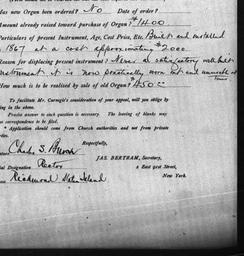 Has new Organ been ordered? No Date of order?
Amount already raised toward purchase of Organ? $1400
Particulars of present Instrument, Age, Cost Price, Etc. Built and installed
1867 at a cost approximating $2000
Reason for displacing present instrument? Never a satisfactory well built
instrument it is now practically worn out and
How much is to be realized by sale of old Organ? $450
To facilitate Mr. Carnegie's consideration of your appeal, will you oblige by
ing in the above.
Precise answer to each question is necessary. The leaving of blanks may
an correspondence to be filed.
* Application should come from Church authorities and not from private
arties.
Respectfully,
Chas. S.
JAS. BERTRAM, Secretary,
cial Designation Rector
2 East 91st Street,
New York.
Richmond Staten Island